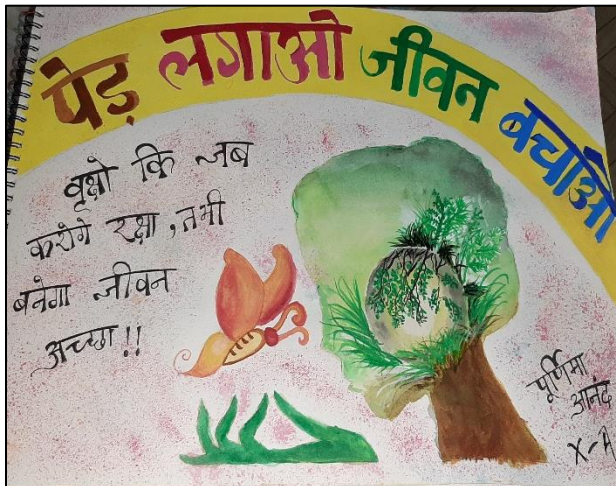 पेड़ लगाओ जीवन बचाओ
वृक्षो कि जब
करोगे रक्षा, तभी
बनेगा जीवन
अच्छा!!
पूर्णिमा
आनंद
X-A